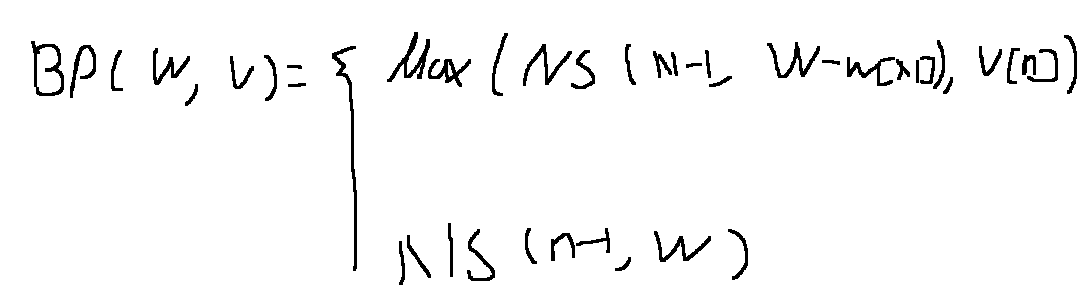 BP( W, V) = { Max ( NS ( n-1, W-w[n]), V[n])
NS (n-1, W)